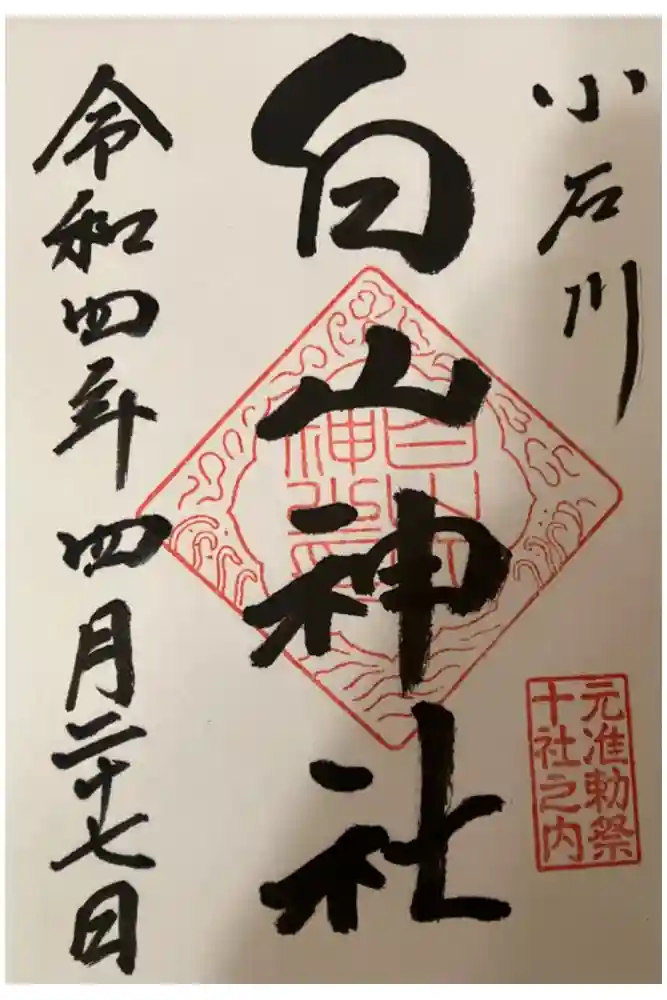 小石川
白山神社
令和四年四月二十七日
元准勅祭
十社之内